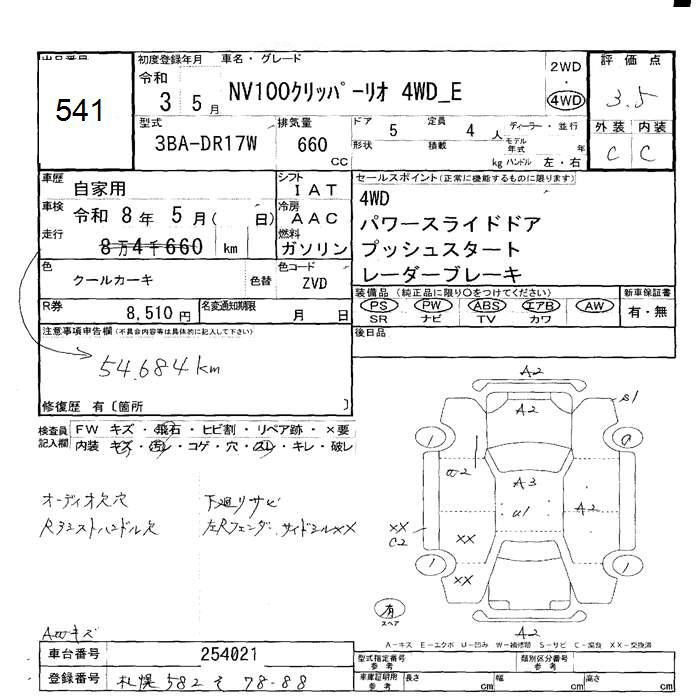 出品番号
541
初度登録年月 車名・グレード
令和 3 5月
NV100クリッパーリオ 4WD_E
2WD
・
4WD
評価点
3.5
型式 排気量 ドア 5 定員 4人 ディーラー・並行
3BA-DR17W 660 CC
形状 積載 kg モデル年式 年
ハンドル 左・右
外装 内装
C C
車歴 自家用
シフト IAT
車検 令和 8年 5月( 日)
冷房 AAC
走行 8万4千660 km
燃料 ガソリン
色 クールカーキ 色替
色コード ZVD
R券 8,510円 名変通知期限 月 日
セールスポイント(正常に機能するものに限ります)
4WD
パワースライドドア
プッシュスタート
レーダーブレーキ
装備品(純正品に限り○をつけてください) 新車保証書
PS PW ABS エアB AW
SR ナビ TV カワ
有・無
後日品
注意事項申告欄(不具合内容等は具体的に記入して下さい)
54.684km
修復歴 有〔箇所 〕
検査員記入欄 FW キズ・飛石・ヒビ割・リペア跡・×要
内装 キズ・汚レ・コゲ・穴・スレ・キレ・破レ
オーディオ欠穴 下廻りサビ
左Rフェンダ、サイドシルXX
AWキズ
A2
A2
S1
1
a
a2
A3
U1
A2
XX
C2
XX
XX
1
1
A2
A2
有
スペア
A-キズ E-エクボ U-凹み W-補修跡 S-サビ C-腐食 XX-交換済
車台番号 254021
登録番号 札幌 582 そ 78-88
型式指定番号 参考 類別区分番号 参考
車庫証明用 参考 長さ cm 幅 cm 高さ cm